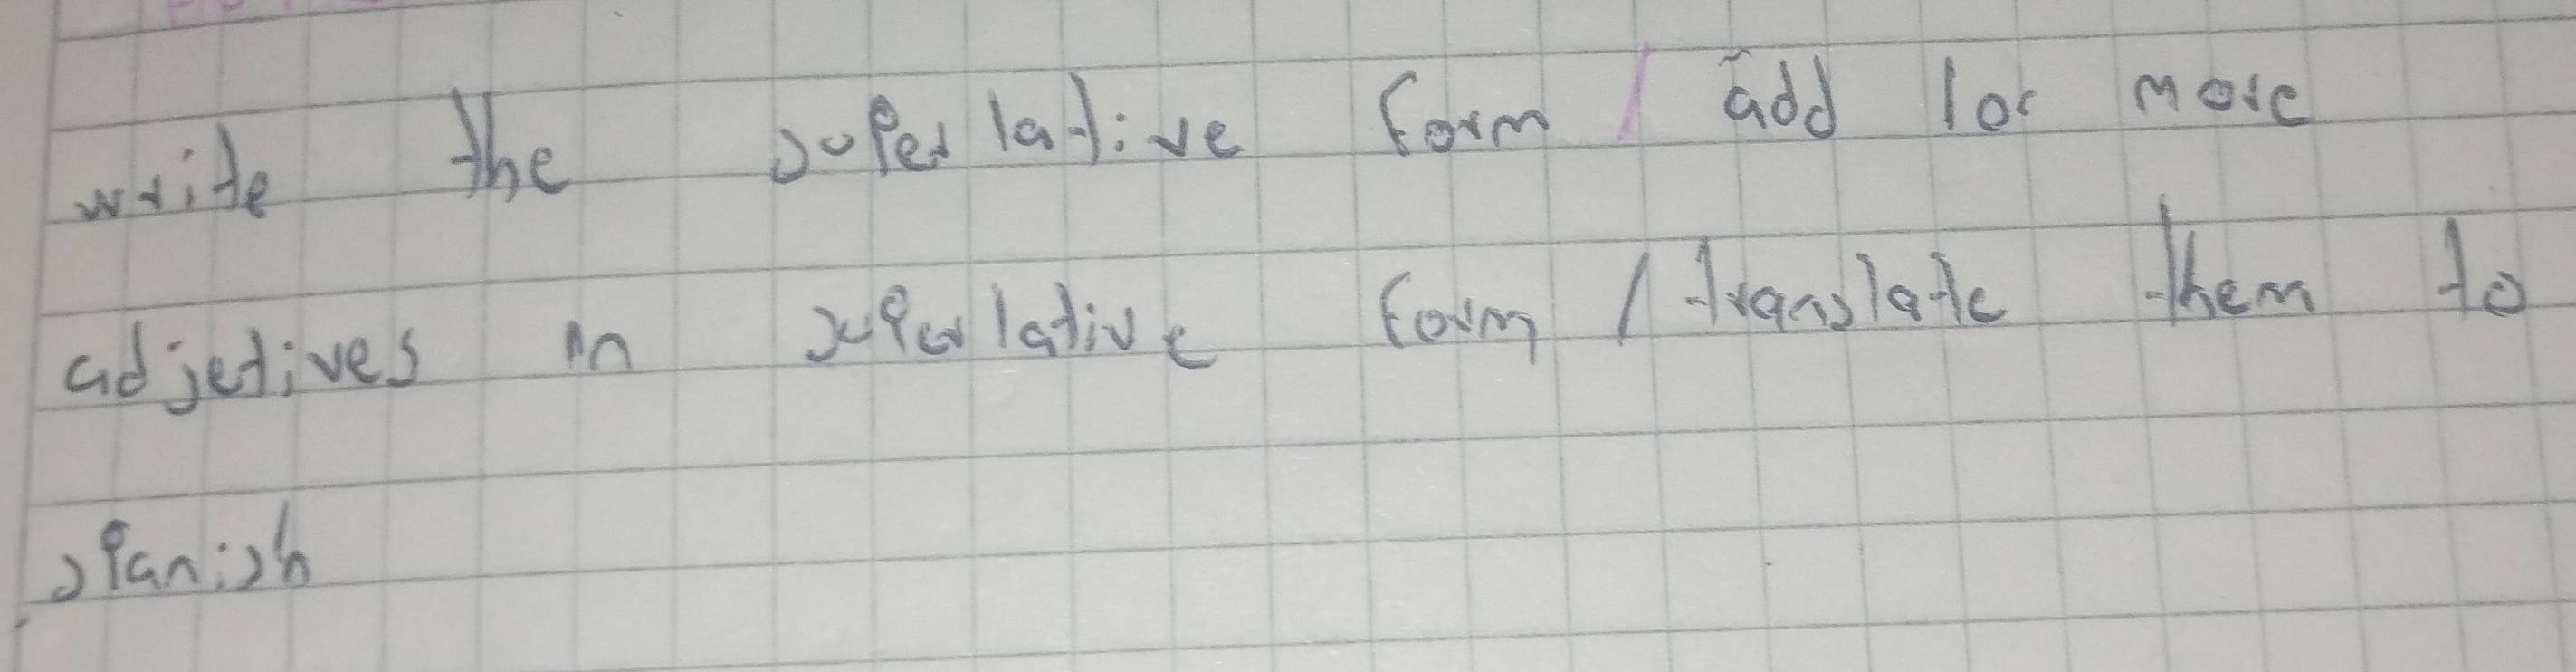 write the superlative form / add 10 or more
adjetives in superlative form / translate them to
spanish